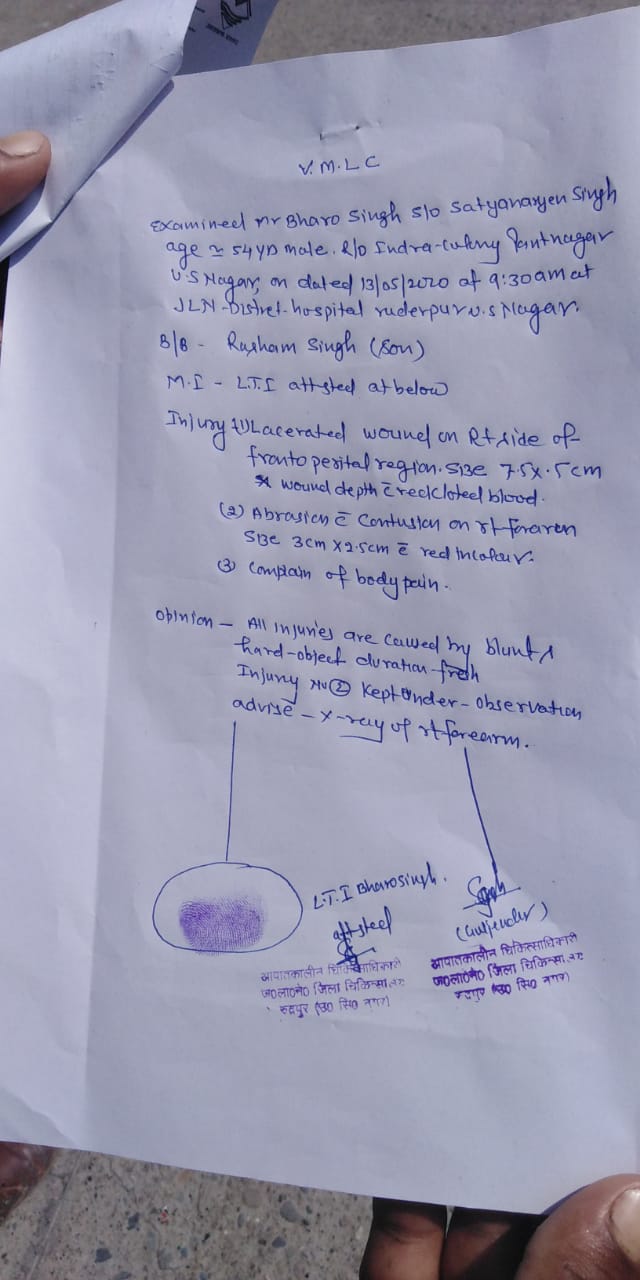 V.M.L.C
Examined Mr Bharo Singh s/o Satyanarayen Singh
age ≃ 54 yrs male. R/o Indra-Colony Pantnagar
U.S Nagar, on dated 13/05/2020 at 9:30am at
JLN-Distret-hospital ruderpur U.S Nagar.
B/B - Rasham Singh (Son)
M.I - L.T.I attsted at below
Injury (1) Lacerated wound on Rt side of
fronto perital region. size 7.5 x .5 cm
x wound depth c̄ red cloted blood.
(2) Abrasion c̄ Contusion on rt forarem
size 3cm x 2.5cm c̄ red in colour.
(3) Complain of body pain.
Opinion - All injuries are caused by blunt &
hard-object duration-fresh
Injury No (2) Kept under-observation
advise - x-ray of rt forearm.
L.T.I Bharosingh.
attsted
आपातकालीन चिकित्साधिकारी
ज०ला०ने० जिला चिकित्सालय
रुद्रपुर (ऊ० सि० नगर)
आपातकालीन चिकित्साधिकारी
ज०ला०ने० जिला चिकित्सालय
रुद्रपुर (ऊ० सि० नगर)